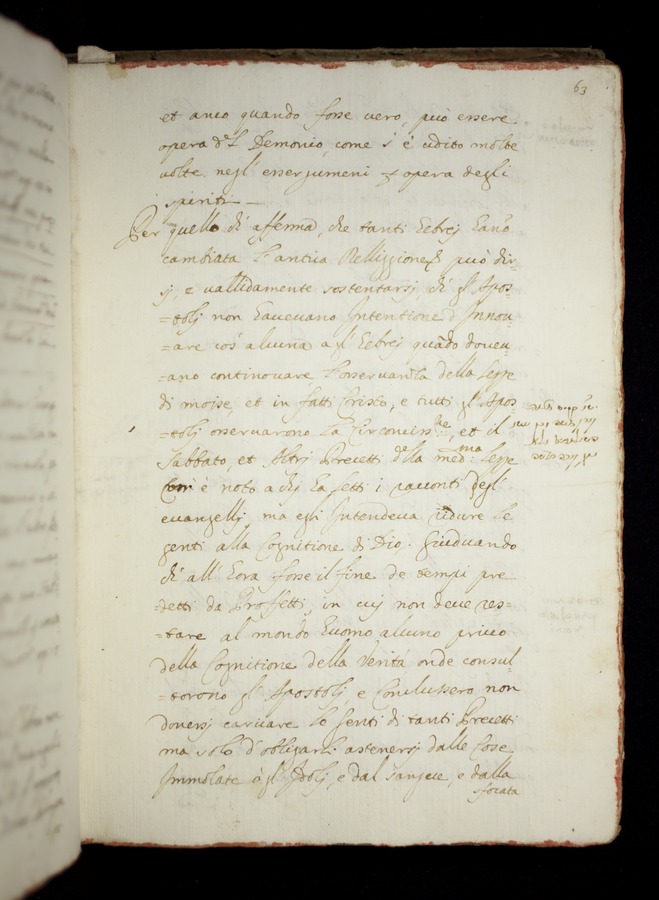 63
et anco quando fosse vero, può essere
opera del Demonio, come s'è udito molte
volte negl'energumeni opera degli
spiriti
Per quello ch'afferma, che tanti Eebrej hano
cambiata l'antica Relliggione, si può dir-
si, e vallidamente sostentarsi, ch'gl'Apos-
=tolj non haveuano Intentione d'Innou-
=are cos'alcuna a gl'Eebrej quãdo doueu-
=ano continouare l'osservanza della legge
di moise, et in fatti Cristo, e tutti gl'Apos
=tolj osseruarono la Circoncis.ne, et il
Sabbato, et Altrj Precetti della med.ma legge
è noto a chi ha letti i racconti degl'
euangellj, ma egli Intendeua ridure le
genti alla Cognitione di Dio. Giudicando
ch'all'hora fosse il fine de tempi pre
=detti da Proffetti, in cuj non deue res=
=tare al mondo huomo alcuno priuo
della Cognitione della Verità onde consul-
=torono gl'Apostolj, e Conclussero non
douersi caricare le genti di tanti Precetti
ma solo d'obligarli astenersi dalle Cose
Immolate a gl'Idolj, e dal sangue, e dalla
sfocata